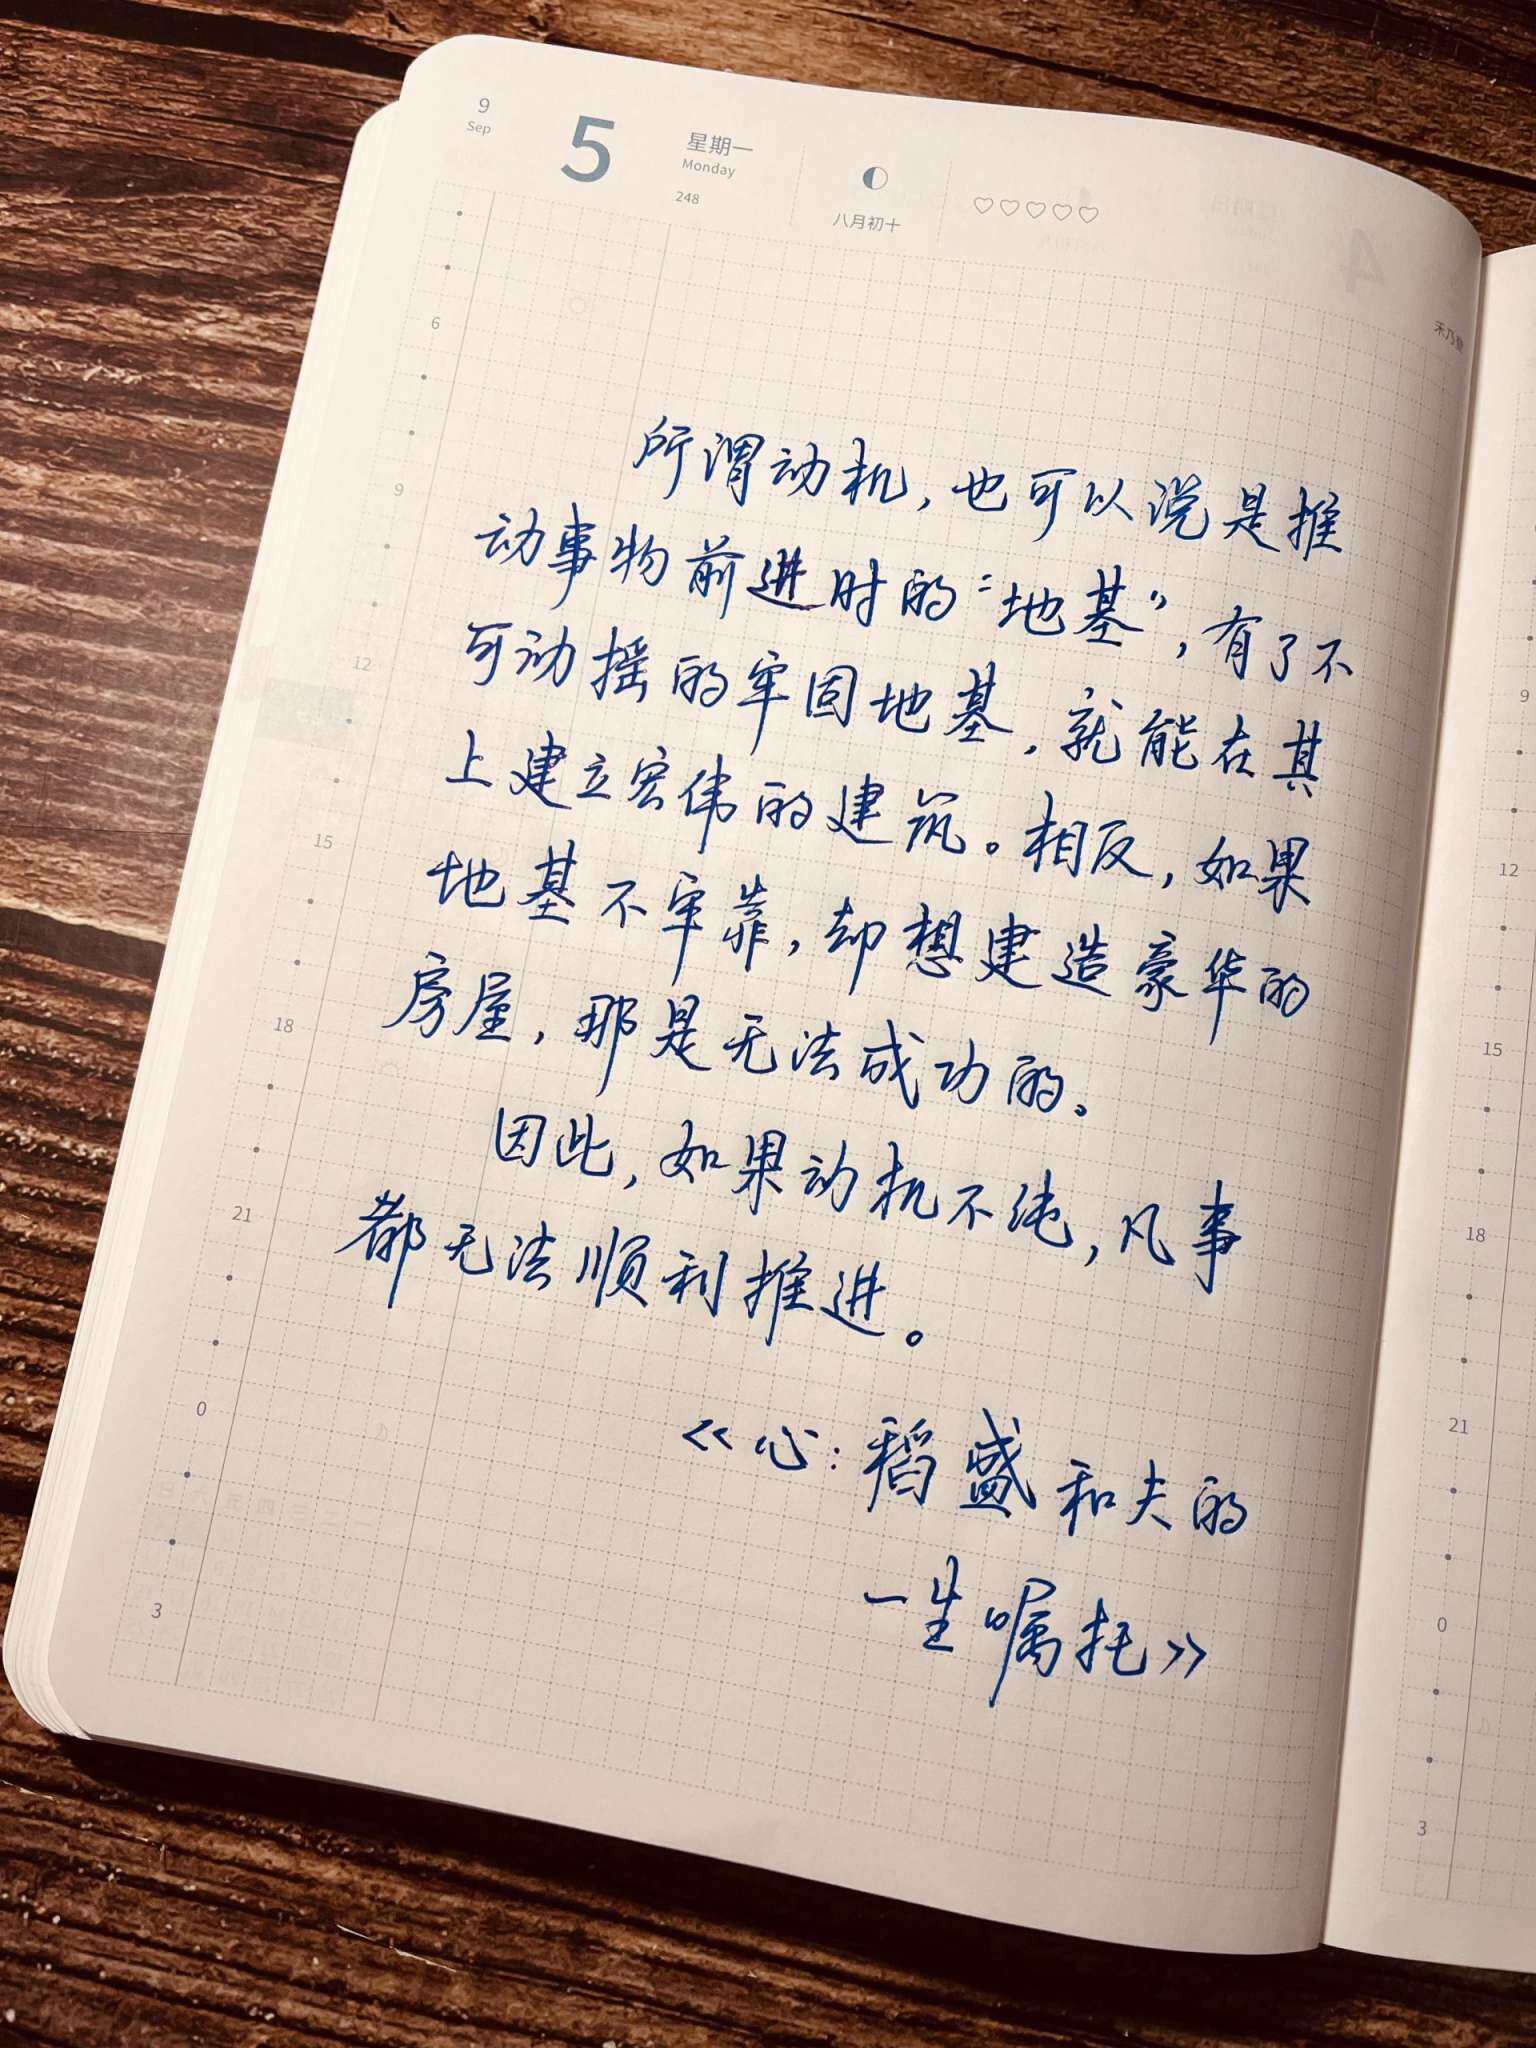 9
Sep
5
星期一
Monday
248
八月初十
4
6
9
12
15
18
21
0
3
所谓动机，也可以说是推
动事物前进时的“地基”，有了不
可动摇的牢固地基，就能在其
上建立宏伟的建筑。相反，如果
地基不牢靠，却想建造豪华的
房屋，那是无法成功的。
因此，如果动机不纯，凡事
都无法顺利推进。
《心：稻盛和夫的
一生嘱托》
9
12
15
18
21
0
3